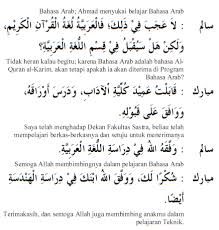 Bahasa Arab; Ahmad menyukai belajar Bahasa Arab
سالم : لَا عَجَبَ فِيْ ذٰلِكَ؛ فَالْعَرَبِيَّةُ لُغَةُ الْقُرْآنِ الْكَرِيْمِ،
وَلٰكِنْ هَلْ سَيُقْبَلُ فِيْ قِسْمِ اللُّغَةِ الْعَرَبِيَّةِ؟
Tidak heran kalau begitu; karena Bahasa Arab adalah bahasa Al-
Quran al-Karim, akan tetapi apakah ia akan diterima di Program
Bahasa Arab?
مبارك : قَابَلْتُ عَمِيْدَ كُلِّيَّةِ الْآدَابِ، وَدَرَسَ أَوْرَاقَهُ،
Saya telah menghadap Dekan Fakultas Sastra, beliau telah
mempelajari berkas-berkasnya dan setuju untuk menerimanya
سالم : وَفَّقَهُ اللهُ فِيْ دِرَاسَةِ اللُّغَةِ الْعَرَبِيَّةِ.
Semoga Allah membimbingnya dalam pelajaran Bahasa Arab
مبارك : شُكْرًا لَكَ، وَوَفَّقَ اللهُ ابْنَكَ فِيْ دِرَاسَةِ الْهَنْدَسَةِ
أَيْضًا.
Terimakasih, dan semoga Allah juga membimbing anakmu dalam
pelajaran Teknik.